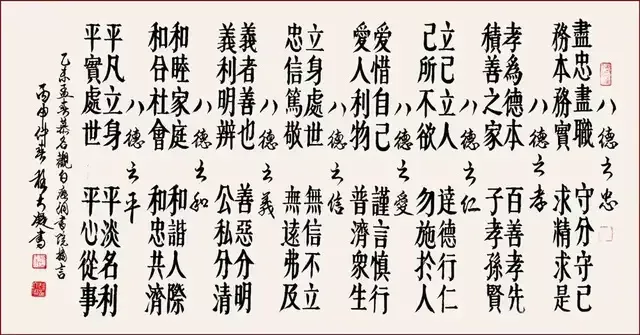 八德之忠
盡忠盡職 守分守己
務本務實 求精求是
八德之孝
孝為德本 百善孝先
積善之家 子孝孫賢
八德之仁
立己立人 達德行仁
己所不欲 勿施於人
八德之愛
愛惜自己 謹言慎行
愛人利物 普濟眾生
八德之信
立身處世 無信不立
忠信篤敬 無遠弗及
八德之義
義者善也 善惡分明
義利明辨 公私分清
八德之和
和睦家庭 和諧人際
和合社會 和忠共濟
八德之平
平凡立身 平淡名利
平實處世 平心從事
乙未孟春
丙申仲春 書